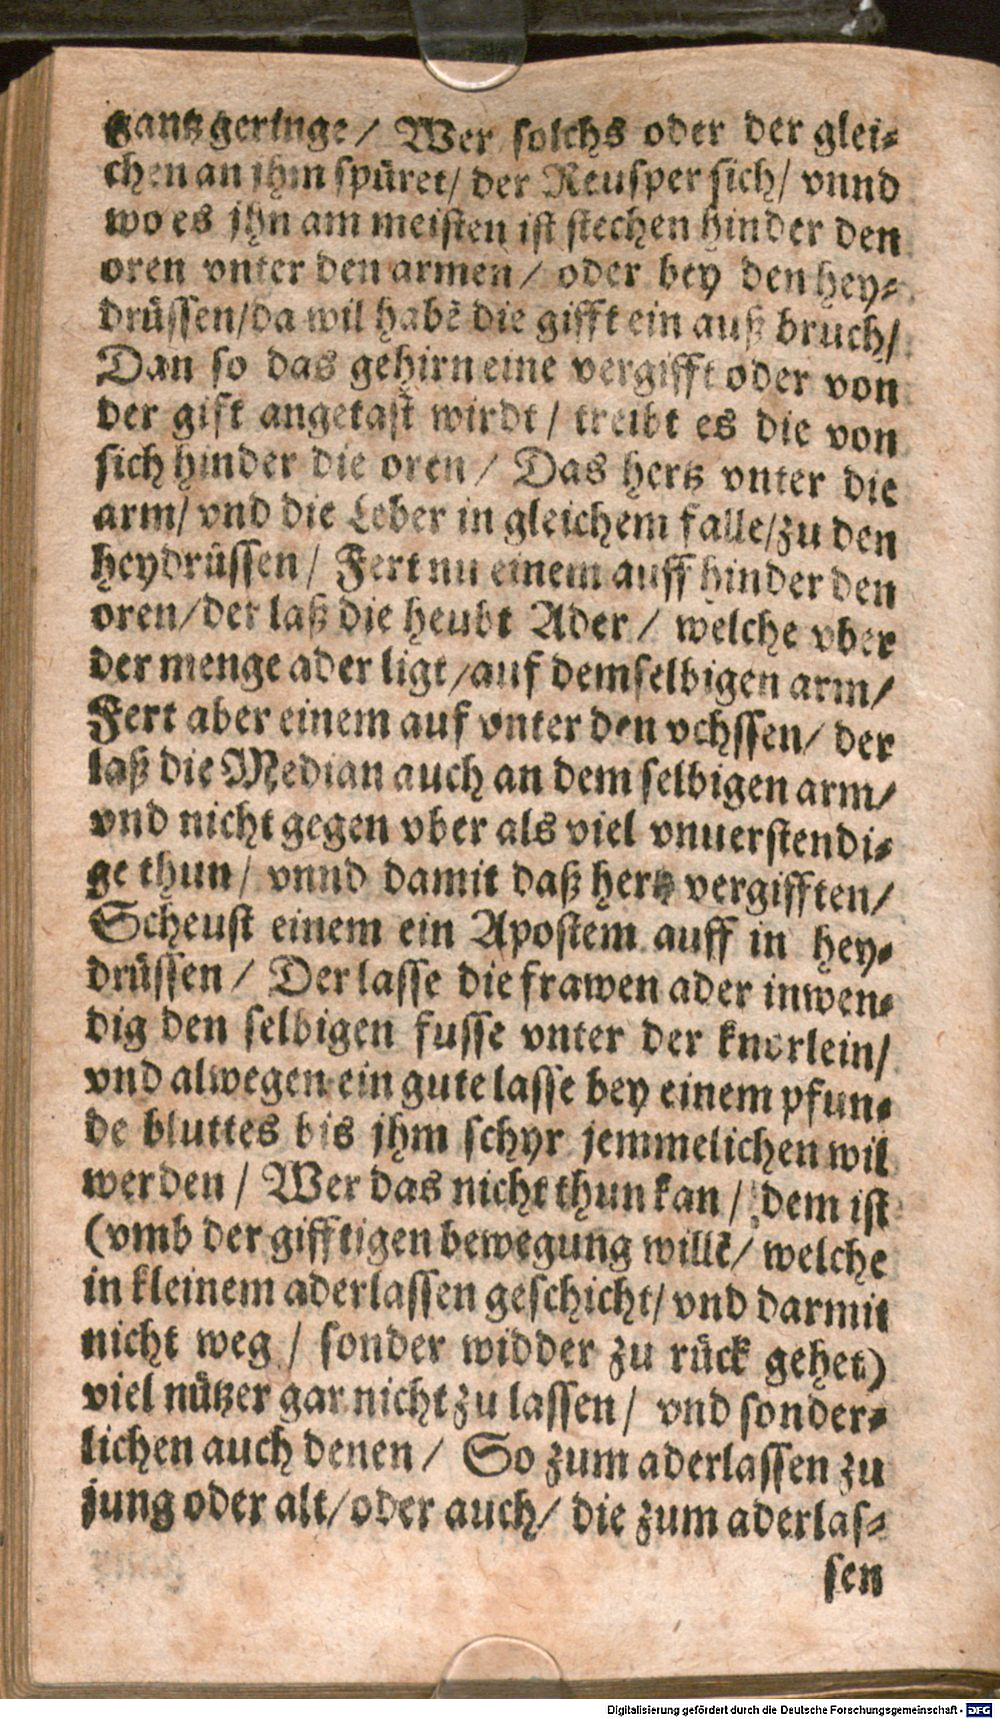 gantz geringe / Wer solchs oder der glei⸗
chen an jhm spüret / der Reusper sich / vnnd
wo es jhn am meisten ist stechen hinder den
oren vnter den armen / oder bey den hey⸗
drüssen / da wil habẽ die gifft ein auß bruch /
Dan so das gehirn eine vergifft oder von
der gift angetast wirdt / treibt es die von
sich hinder die oren / Das hertz vnter die
arm / vnd die Leber in gleichem falle / zu den
heydrüssen / Fert nu einem auff hinder den
oren / der laß die heubt Ader / welche vber
der menge ader ligt / auf demselbigen arm /
Fert aber einem auf vnter den vchssen / der
laß die Median auch an dem selbigen arm /
vnd nicht gegen vber als viel vnuerstendi⸗
ge thun / vnnd damit daß hertz vergifften /
Scheust einem ein Apostem auff in hey⸗
drüssen / Der lasse die frawen ader inwen⸗
dig den selbigen fusse vnter der knorlein /
vnd alwegen ein gute lasse bey einem pfun⸗
de bluttes bis jhm schyr jemmelichen wil
werden / Wer das nicht thun kan / dem ist
(vmb der gifftigen bewegung willẽ / welche
in kleinem aderlassen geschicht / vnd darmit
nicht weg / sonder widder zu rück gehet)
viel nützer gar nicht zu lassen / vnd sonder⸗
lichen auch denen / So zum aderlassen zu
jung oder alt / oder auch / die zum aderlas⸗
sen
Digitalisierung gefördert durch die Deutsche Forschungsgemeinschaft - DFG